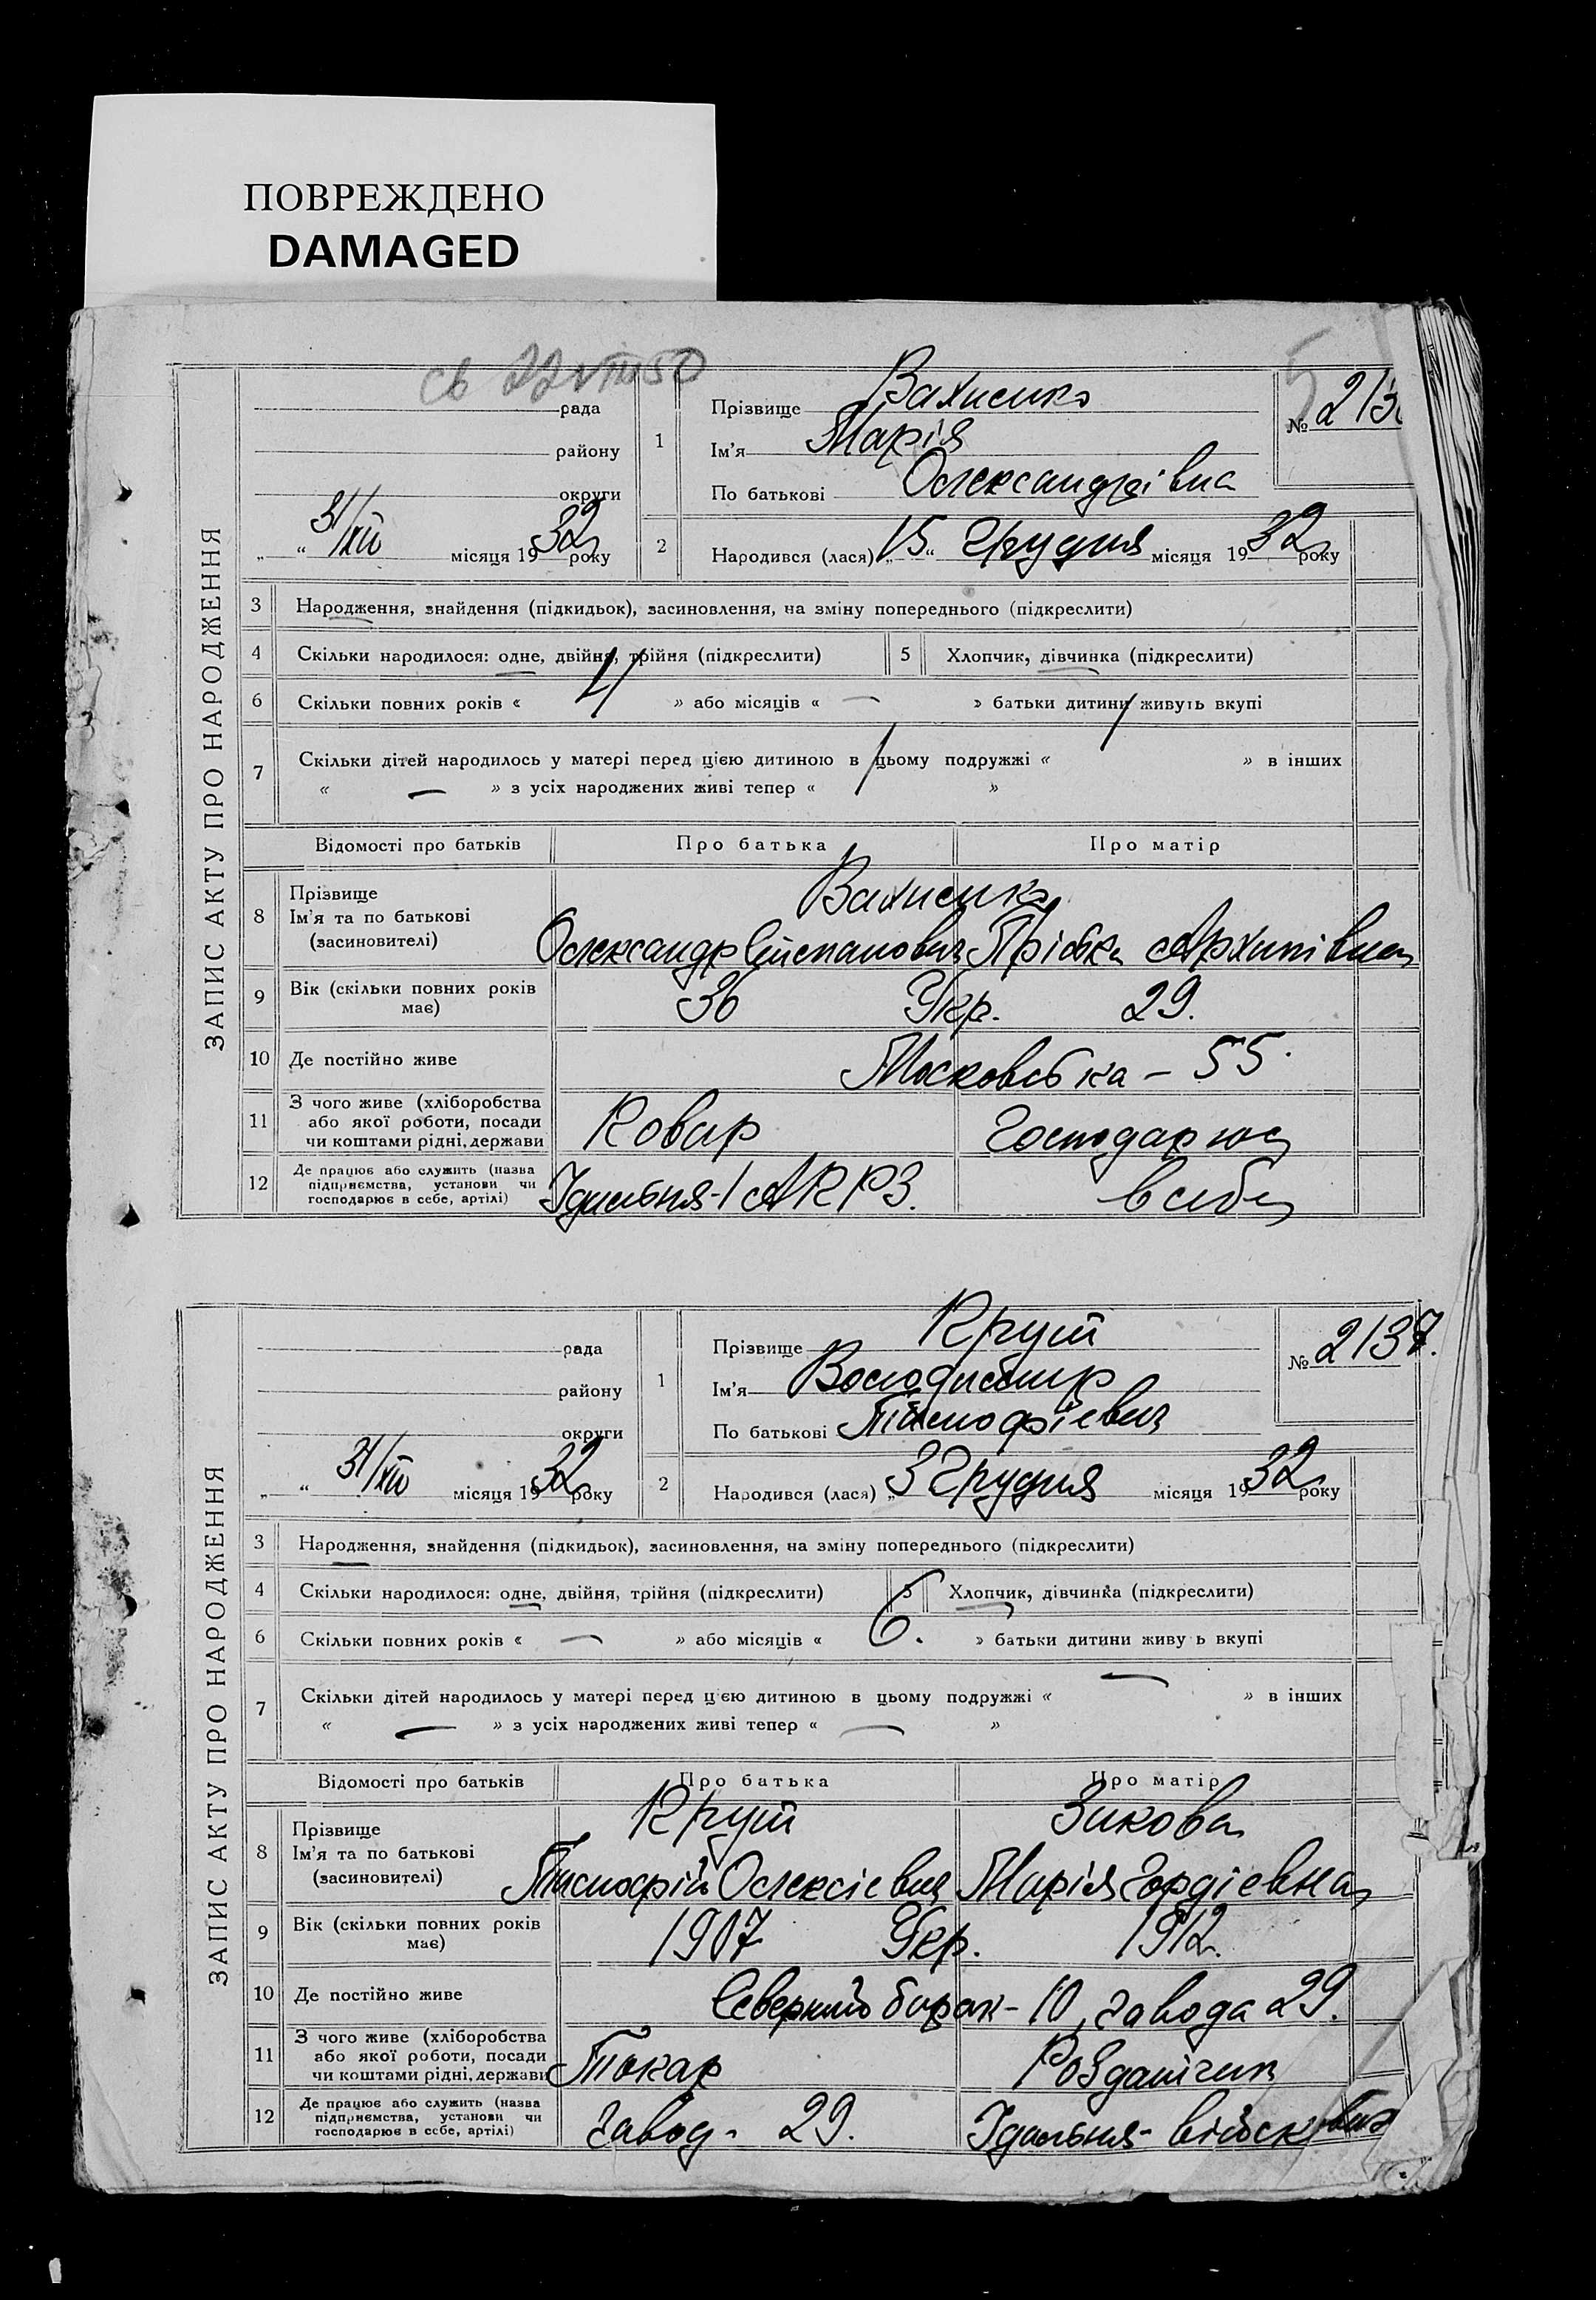 ПОВРЕЖДЕНО
DAMAGED
св 22 VIII 50
ЗАПИС АКТУ ПРО НАРОДЖЕННЯ
рада
району
округи
„ “ 31/XII місяця 1932 року
1 Прізвище
Ім'я Марія
По батькові Олександрівна
№ 213
2 Народився (лася) „15“ Грудня місяця 1932 року
3 Народження, знайдення (підкидьок), засиновлення, на зміну попереднього (підкреслити)
4 Скільки народилося: одне, двійня, трійня (підкреслити) 5 Хлопчик, дівчинка (підкреслити)
6 Скільки повних років « 4 » або місяців « — » батьки дитини живуть вкупі
7 Скільки дітей народилось у матері перед цією дитиною в цьому подружжі « 1 » в інших
« — » з усіх народжених живі тепер « 1 »
Відомості про батьків Про батька Про матір
8 Прізвище
Ім'я та по батькові
(засиновителі)
Олександр Степанович Архипівна
9 Вік (скільки повних років має) 36 Укр. 29.
10 Де постійно живе Московська – 55.
11 З чого живе (хліборобства або якої роботи, посади чи коштами рідні, держави Ковар Господарює
12 Де працює або служить (назва підприємства, установи чи господарює в себе, артілі) Їдальня-1 в себе
ЗАПИС АКТУ ПРО НАРОДЖЕННЯ
рада
району
округи
„ “ 31/XII місяця 1932 року
1 Прізвище Круш
Ім'я Володимир
По батькові Тимофієвич
№ 2137.
2 Народився (лася) „3 Грудня місяця 1932 року
3 Народження, знайдення (підкидьок), засиновлення, на зміну попереднього (підкреслити)
4 Скільки народилося: одне, двійня, трійня (підкреслити) 5 Хлопчик, дівчинка (підкреслити)
6 Скільки повних років « — » або місяців « 6. » батьки дитини живу ь вкупі
7 Скільки дітей народилось у матері перед цією дитиною в цьому подружжі « — » в інших
« — » з усіх народжених живі тепер « — »
Відомості про батьків Про батька Про матір
8 Прізвище
Ім'я та по батькові
(засиновителі)
Круш Зикова
Тимофій Олексієвич Марія Гордієвна
9 Вік (скільки повних років має) 1907 Укр. 1912.
10 Де постійно живе барак – 10, завода 29.
11 З чого живе (хліборобства або якої роботи, посади чи коштами рідні, держави Токар Роздатчик
12 Де працює або служить (назва підприємства, установи чи господарює в себе, артілі) Завод - 29. Їдальня-